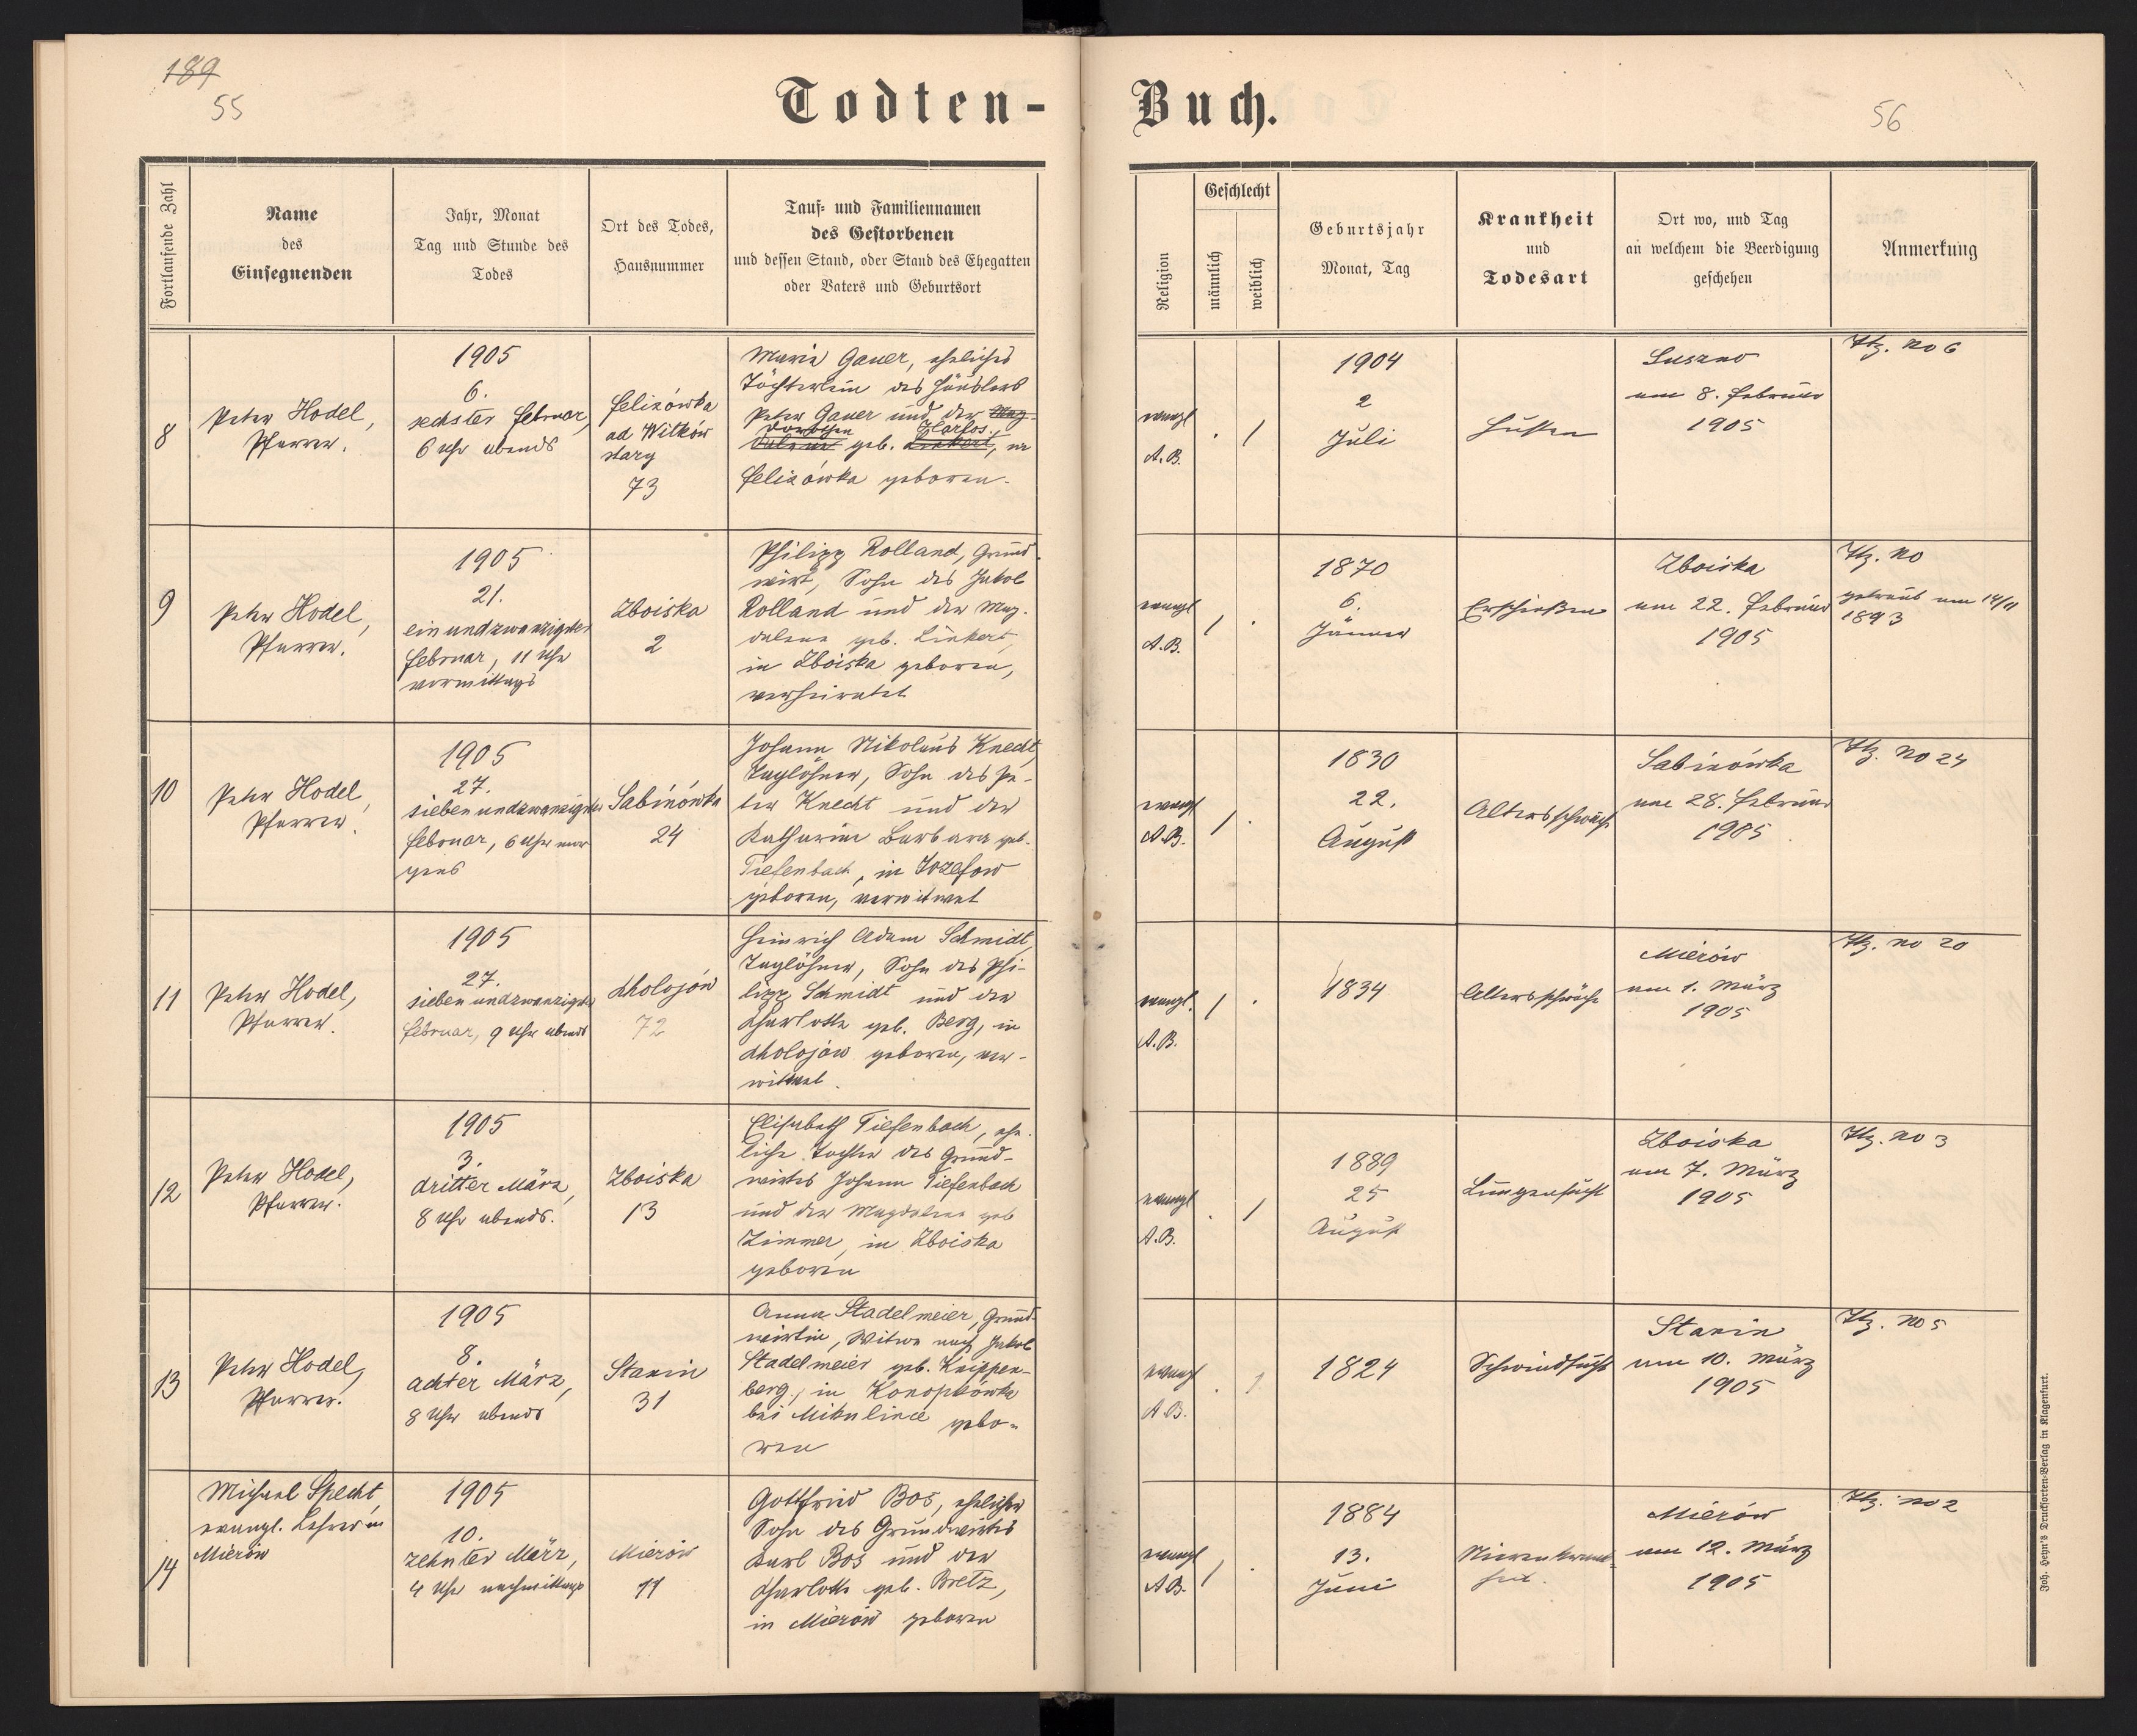 189
55
Todten-Buch.
56
Fortlaufende Zahl
Name
des
Einsegnenden
Jahr, Monat
Tag und Stunde des
Todes
Ort des Todes,
Hausnummer
Tauf- und Familiennamen
des Gestorbenen
und dessen Stand, oder Stand des Ehegatten
oder Vaters und Geburtsort
Religion
Geschlecht
männlich
weiblich
Geburtsjahr
Monat, Tag
Krankheit
und
Todesart
Ort wo, und Tag
an welchem die Beerdigung
geschehen
Anmerkung
8
Peter Hodel,
Pfarrer.
1905
6.
sechster Februar,
6 Uhr abends
Felizówka
ad Witków
stary
73
Maria Gauer, eheliches
Töchterlein des Häuslers
Peter Gauer und der Mag-
dalena geb. Linkert, in
Felizówka geboren.
evangl
A.B.
. 1
1904
2
Juli
Husten
Suszno
am 8. Februar
1905
No 6
9
Peter Hodel,
Pfarrer.
1905
21.
einundzwanzigster
Februar, 11 Uhr
vormittags
Zboiska
2
Philipp Rolland, Grund-
wirt, Sohn des Jakob
Rolland und der Mag-
dalena geb. Linkert,
in Zboiska geboren,
verheiratet
evangl
A.B.
1 .
1870
6.
Jänner
Erschießen
Zboiska
am 22. Februar
1905
No
getraut am 14/11
1893
10
Peter Hodel,
Pfarrer.
1905
27.
siebenundzwanzigster
Februar, 6 Uhr mor
gens
Sabinówka
24
Johann Nikolaus Knecht,
Taglöhner, Sohn des Pe-
ter Knecht und der
Katharina Barbara geb.
Tiefenbach, in Jozefow
geboren, verwitwet
evangl
A.B.
1 .
1830
22.
August
Altersschwäche
Sabinówka
am 28. Februar
1905
No 24
11
Peter Hodel,
Pfarrer.
1905
27.
siebenundzwanzigster
Februar, 9 Uhr abends
Cholojów
72
Heinrich Adam Schmidt,
Taglöhner, Sohn des Phi-
lipp Schmidt und der
Charlotte geb. Berg, in
Cholojów geboren, ver-
witwet.
evangl.
A.B.
1 .
1834
Altersschwäche
Mierów
am 1. März
1905
No 20
12
Peter Hodel,
Pfarrer.
1905
3.
dritter März,
8 Uhr abends.
Zboiska
13
Elisabeth Tiefenbach, ehe-
liche Tochter des Grund-
wirtes Johann Tiefenbach
und der Magdalena geb
Zimmer, in Zboiska
geboren
evangl
A.B.
. 1
1889
25
August
Lungensucht
Zboiska
am 7. März
1905
No 3
13
Peter Hodel,
Pfarrer.
1905
8.
achter März,
8 Uhr abends
Stanin
31
Anna Stadelmeier, Grund-
wirtin, Witwe nach Jakob
Stadelmeier geb. Knippen-
berg, in Konopkówka
bei Mikulince gebo-
ren
evangl
A.B.
. 1
1824
Schwindsucht
Stanin
am 10. März
1905
No 5
14
Michael Specht,
evangl. Lehrer in
Mierów
1905
10.
zehnter März,
4 Uhr nachmittags
Mierów
11
Gottfried Bos, ehelicher
Sohn des Grundwirtes
Karl Bos und der
Charlotte geb. Bretz,
in Mierów geboren
evangl
A.B.
1 .
1884
13.
Juni
Nierenkrank-
heit.
Mierów
am 12. März
1905
No 2
Joh. Heyn's Drucksorten-Verlag in Klagenfurt.